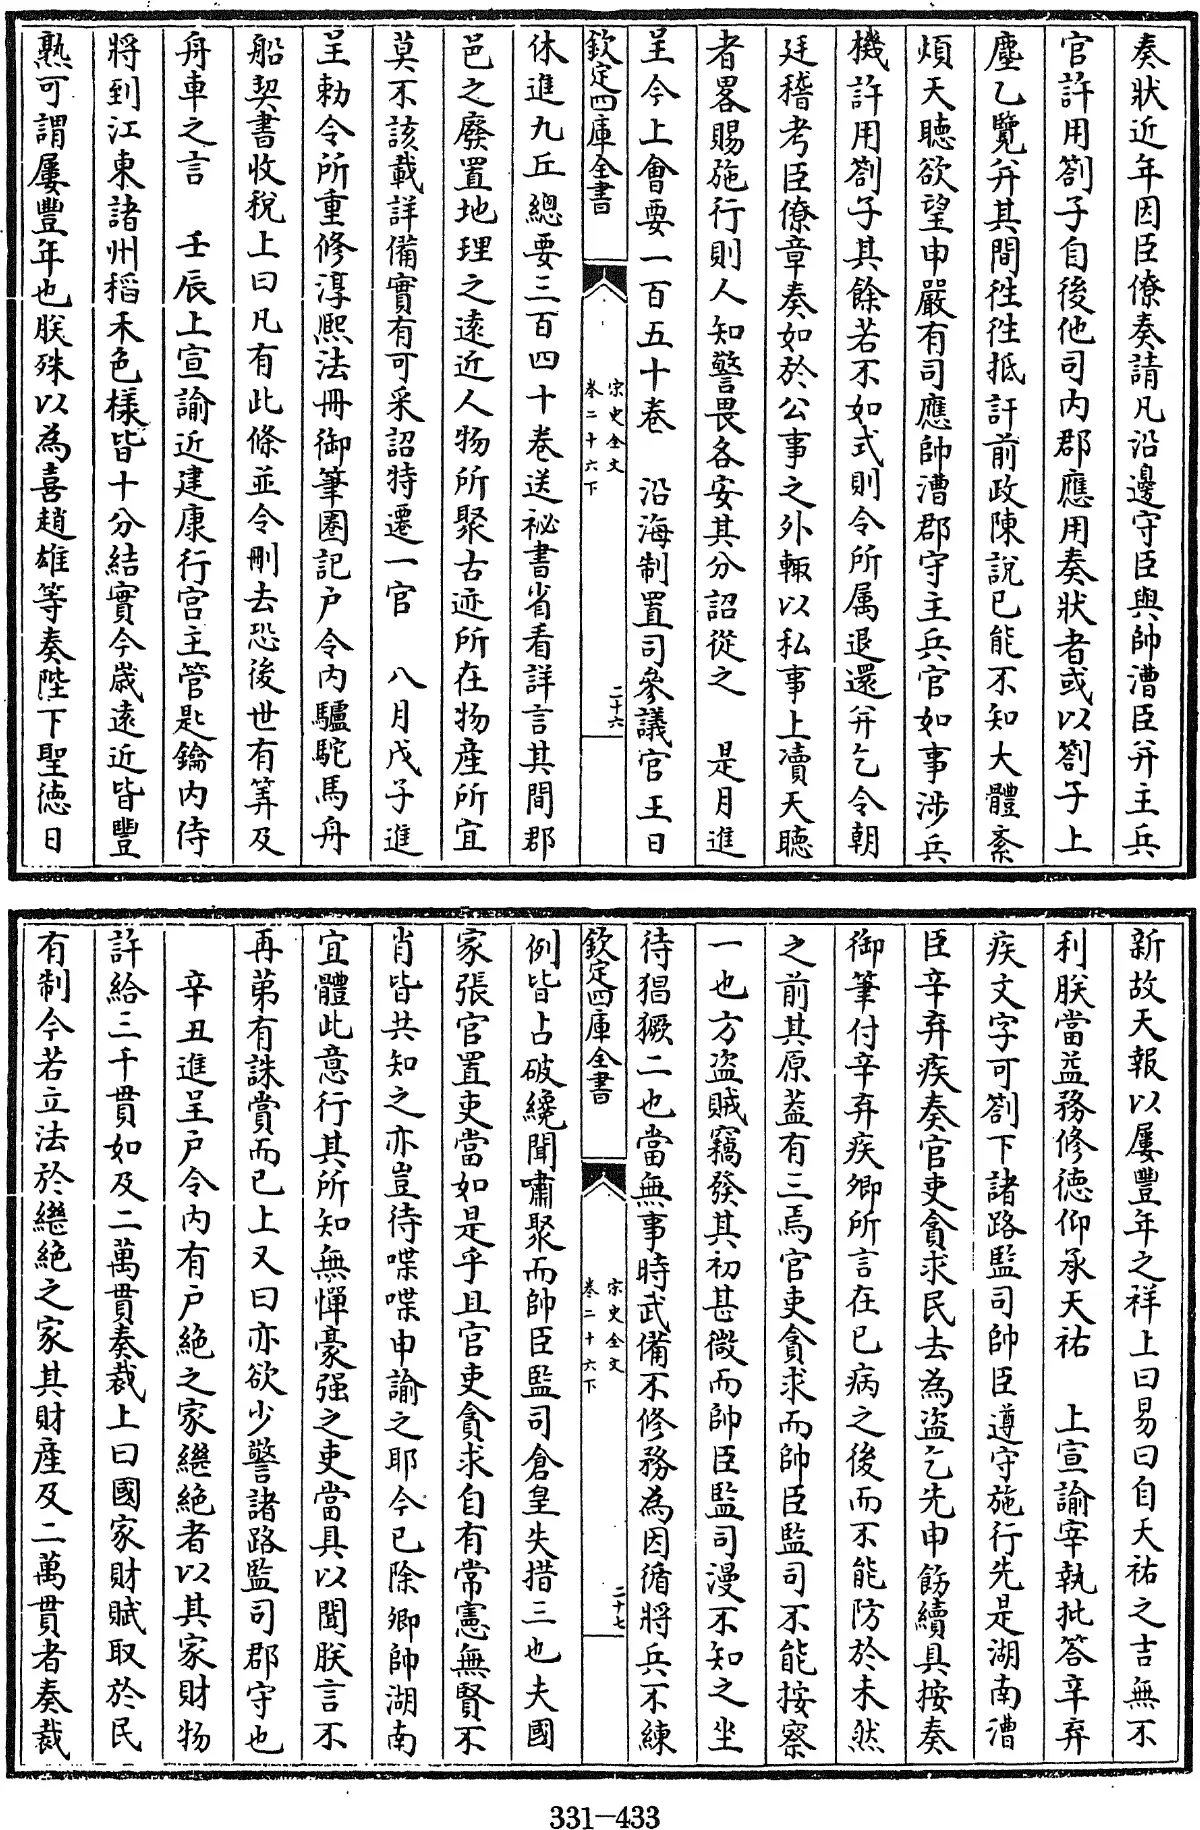 奏狀近年因臣僚奏請凡沿邊守臣與帥漕臣并主兵
官許用劄子自後他司内郡應用奏狀者或以劄子上
塵乙覽并其間徃徃抵訐前政陳說已能不知大體紊
煩天聴欲望申嚴有司應帥漕郡守主兵官如事涉兵
機許用劄子其餘若不如式則令所属退還并乞令朝
廷稽考臣僚章奏如於公事之外輙以私事上瀆天聴
者畧賜施行則人知警畏各安其分詔從之　是月進
呈今上會要一百五十卷　沿海制置司參議官王日
欽定四庫全書
宋史全文
卷二十六下
二十六
休進九丘總要三百四十卷送祕書省看詳言其間郡
邑之廢置地理之遠近人物所聚古迹所在物産所宜
莫不該載詳備實有可采詔特遷一官　八月戊子進
呈勅令所重修淳熙法冊御筆圏記户令内驢駝馬舟
船契書收税上曰凡有此條並令刪去恐後世有筭及
舟車之言　壬辰上宣諭近建康行宫主管匙鑰内侍
將到江東諸州稻禾色樣皆十分結實今歲遠近皆豐
熟可謂屢豐年也朕殊以為喜趙雄等奏陛下聖徳日
新故天報以屢豐年之祥上曰易曰自天祐之吉無不
利朕當益務修徳仰承天祐　上宣諭宰執批答辛弃
疾文字可劄下諸路監司帥臣遵守施行先是湖南漕
臣辛弃疾奏官吏貪求民去為盗乞先申飭續具按奏
御筆付辛弃疾卿所言在已病之後而不能防於未然
之前其原葢有三焉官吏貪求而帥臣監司不能按察
一也方盗賊竊發其初甚微而帥臣監司漫不知之坐
待猖獗二也當無事時武備不修務為因循將兵不練
欽定四庫全書
宋史全文
卷二十六下
二十七
例皆占破纔聞嘯聚而帥臣監司倉皇失措三也夫國
家張官置吏當如是乎且官吏貪求自有常憲無賢不
肖皆共知之亦豈待喋喋申諭之耶今已除卿帥湖南
宜體此意行其所知無憚豪强之吏當具以聞朕言不
再苐有誅賞而已上又曰亦欲少警諸路監司郡守也
辛丑進呈户令内有户絶之家繼絶者以其家財物
許給三千貫如及二萬貫奏裁上曰國家財賦取於民
有制今若立法於繼絶之家其財産及二萬貫者奏裁
331—433